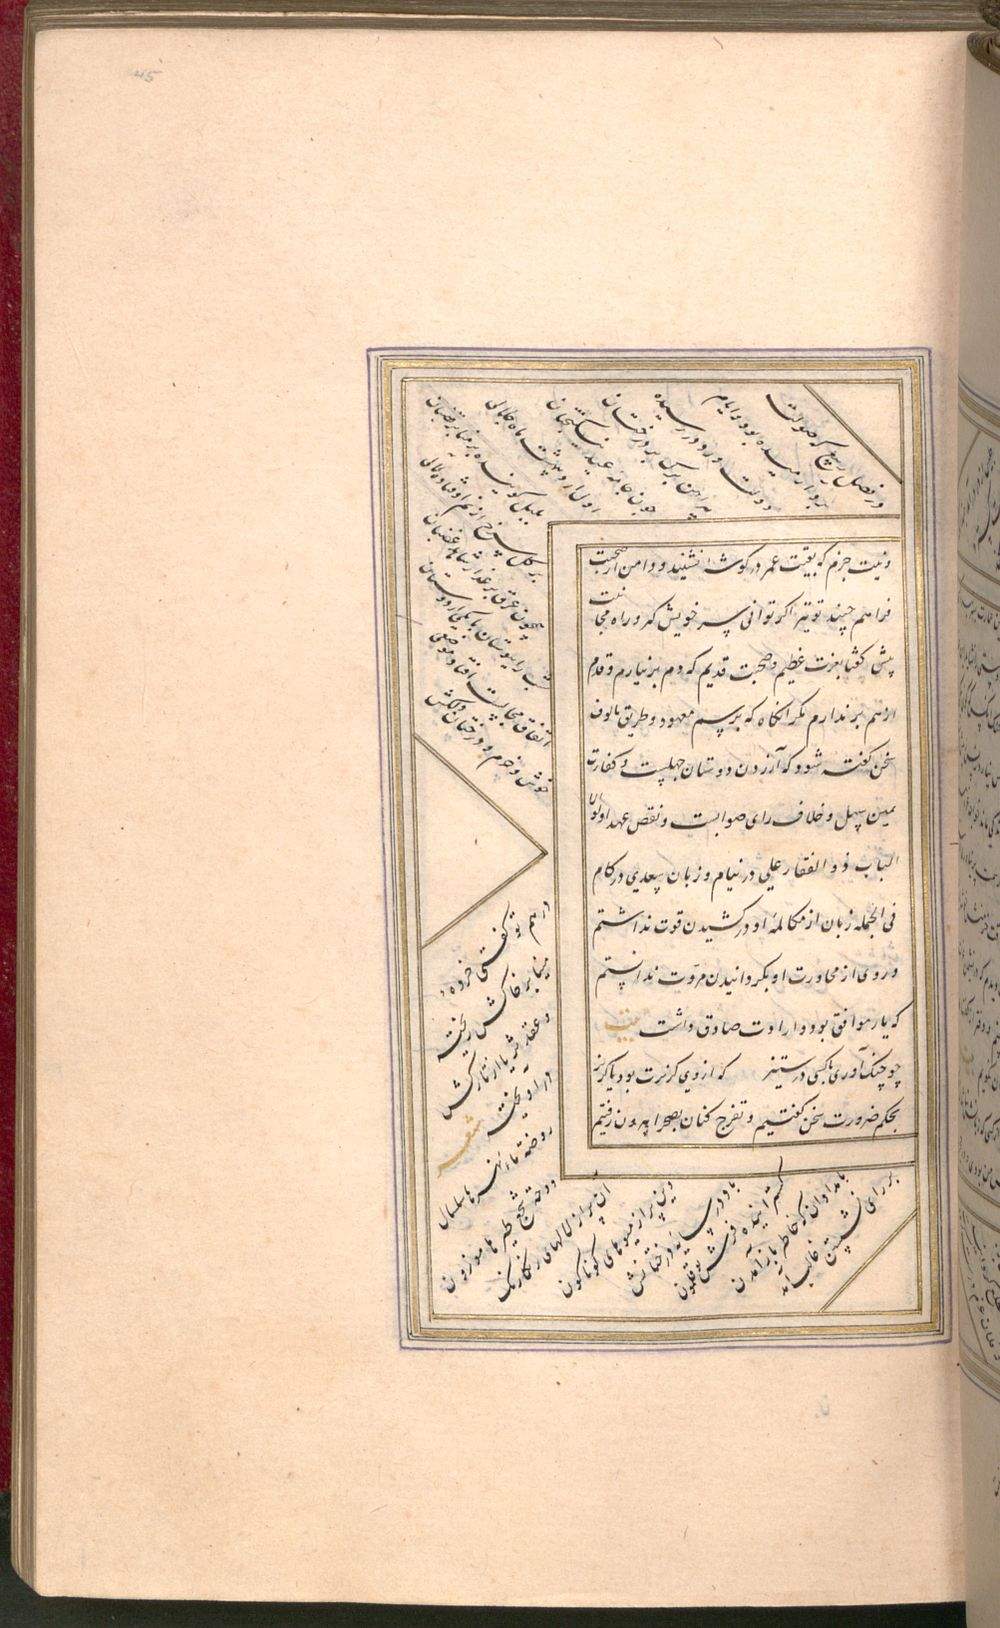 و نیت جزم که بقیت عمر در گوشه‌ای نشیند و دامن از صحبت
فراهم چیند تو نیز اگر توانی سر خویش گیر و راه مجانبت
پیش گفتا بعزت عظیم و صحبت قدیم که دم بر نیارم و قدم
از هم برندارم مگر آنگاه که برسم معهود و طریق مالوف
سخن گفته شود که آزردن دوستان جهلست و کفارت
یمین سهل و خلاف رای صوابست و نقص عهد اولوا
الباب ذو الفقار علی در نیام و زبان سعدی در کام
فی الجمله زبان از مکالمه او در کشیدن قوت نداشتم
و روی از محاورت او بگردانیدن مروت ندانستم
که یار موافق بود و ارادت صادق داشت بیت
چو جنگ آوری با کسی در ستیز که از وی گزیرت بود یا گریز
بحکم ضرورت سخن گفتیم و تفرج کنان بصحرا بیرون رفتیم
در فصل ربیع که صولت
برد آرمیده بود و ایام
دولت ورد رسیده
پیراهن برگ بر درختان
چون جامه عید نیکبختان
اول اردیبهشت ماه جلالی
بلبل گوینده بر منابر قضبان
بر گل سرخ از نم اوفتاده لالی
همچون عرق بر عذار شاهد غضبان
شب را ببوستان با یکی از دوستان
اتفاق مبیت افتاد موضعی
خوش و خرم و درختان دلکش
در هم تو گفتی خرده
مینا بر خاکش ریخته
و عقد ثریا از تارکش
در آویخته شعر
روضة ماء نهرها سلسال
دوحة سجع طیرها موزون
آن پر از لالهای رنگارنگ
وین پر از میوهای گوناگون
باد در سایه درختانش
گسترانیده فرش بوقلمون
بامدادان که خاطر باز آمدن
بر رای نشستن غالب آمد